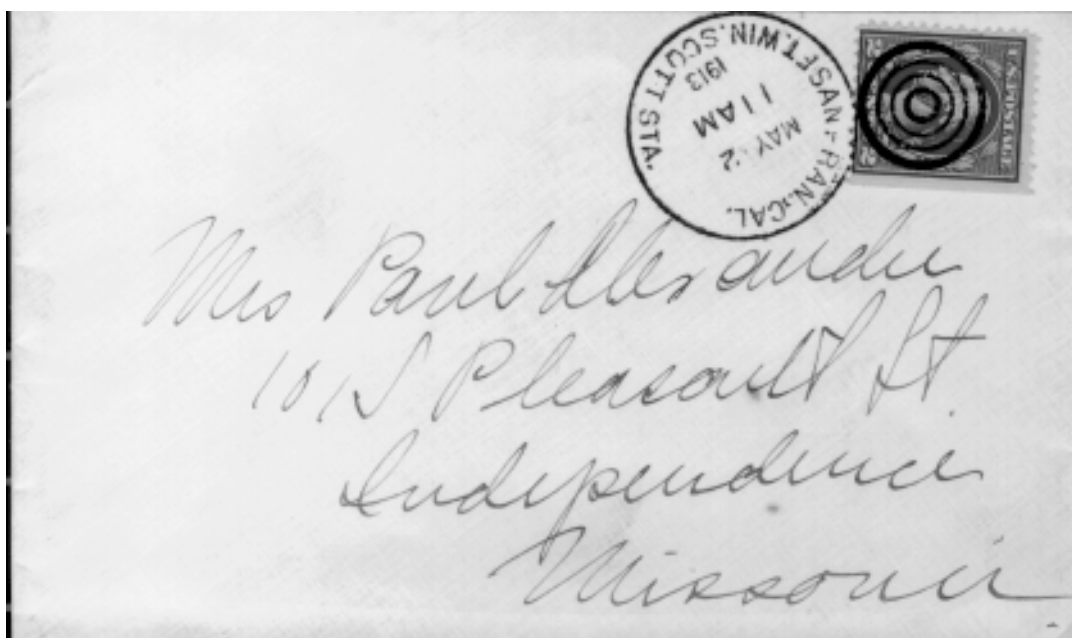 SAN FRAN., CAL.
FT. WIN. SCOTT STA.
MAY 2
11 AM
1913
U.S. POSTAGE
2 2
Mrs Paul Alexander
1015 Pleasant St.
Independence
Missouri